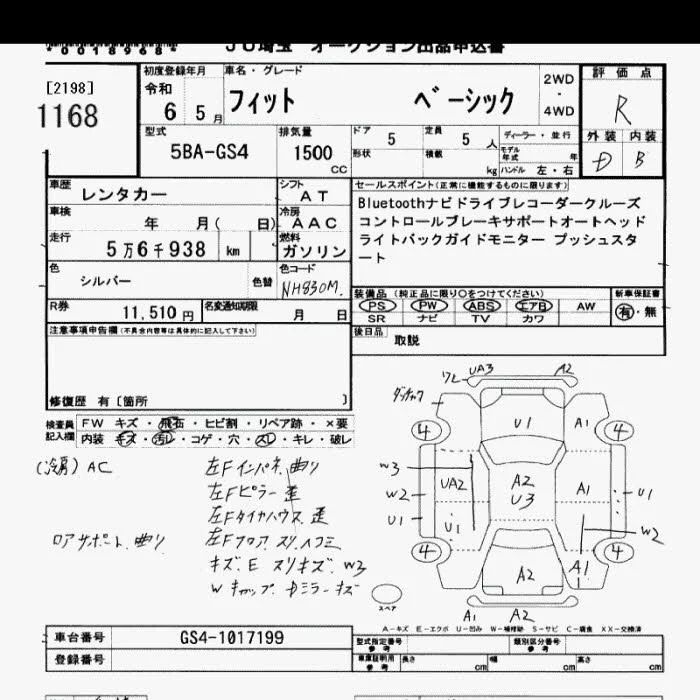 *0018968*
JU埼玉 オークション出品申込書
[2198]
1168
初度登録年月
令和
6 5月
車名・グレード
フィット ベーシック
2WD
・
4WD
評価点
R
外装 内装
D B
型式
5BA-GS4
排気量
1500
CC
ドア
5
定員
5人
ディーラー・並行
形状
積載
kg
モデル年式 年
ハンドル 左・右
車歴
レンタカー
シフト
AT
車検
年 月( 日)
冷房
AAC
走行
5万6千938 km
燃料
ガソリン
色
シルバー
色替
色コード
NH830M
R券
11,510円
名変通知期限
月 日
セールスポイント(正常に機能するものに限ります)
Bluetoothナビドライブレコーダークルーズ
コントロールブレーキサポートオートヘッド
ライトバックガイドモニター プッシュスタ
ート
装備品 (純正品に限り○をつけてください)
PS PW ABS エアB AW
SR ナビ TV カワ
新車保証書
有・無
後日品
取説
注意事項申告欄(不具合内容等は具体的に記入して下さい)
修復歴 有〔箇所 〕
検査員
記入欄
FW キズ・飛石・ヒビ割・リペア跡・×要
内装 キズ・汚レ・コゲ・穴・スレ・キレ・破レ
(冷房) AC
左Fインパネ 曲り
左Fピラー 歪
左Fタイヤハウス 歪
ロアサポート 曲り
左Fフロア スリ、ヘコミ
キズ、E スリキズ、W3
Wキャップ、Dミラーキズ
ワレ UA3 A2
4 U1 A1 4
W3
UA2 A2 A1 U1
W2 U3
U1 U1 W2
4 A1 4
A2
A1 A2
スペア
A-キズ E-エクボ U-凹み W-補修跡 S-サビ C-腐食 XX-交換済
車台番号
GS4-1017199
登録番号
型式指定番号
参考
類別区分番号
参考
車庫証明用
参考
長さ cm
幅 cm
高さ cm